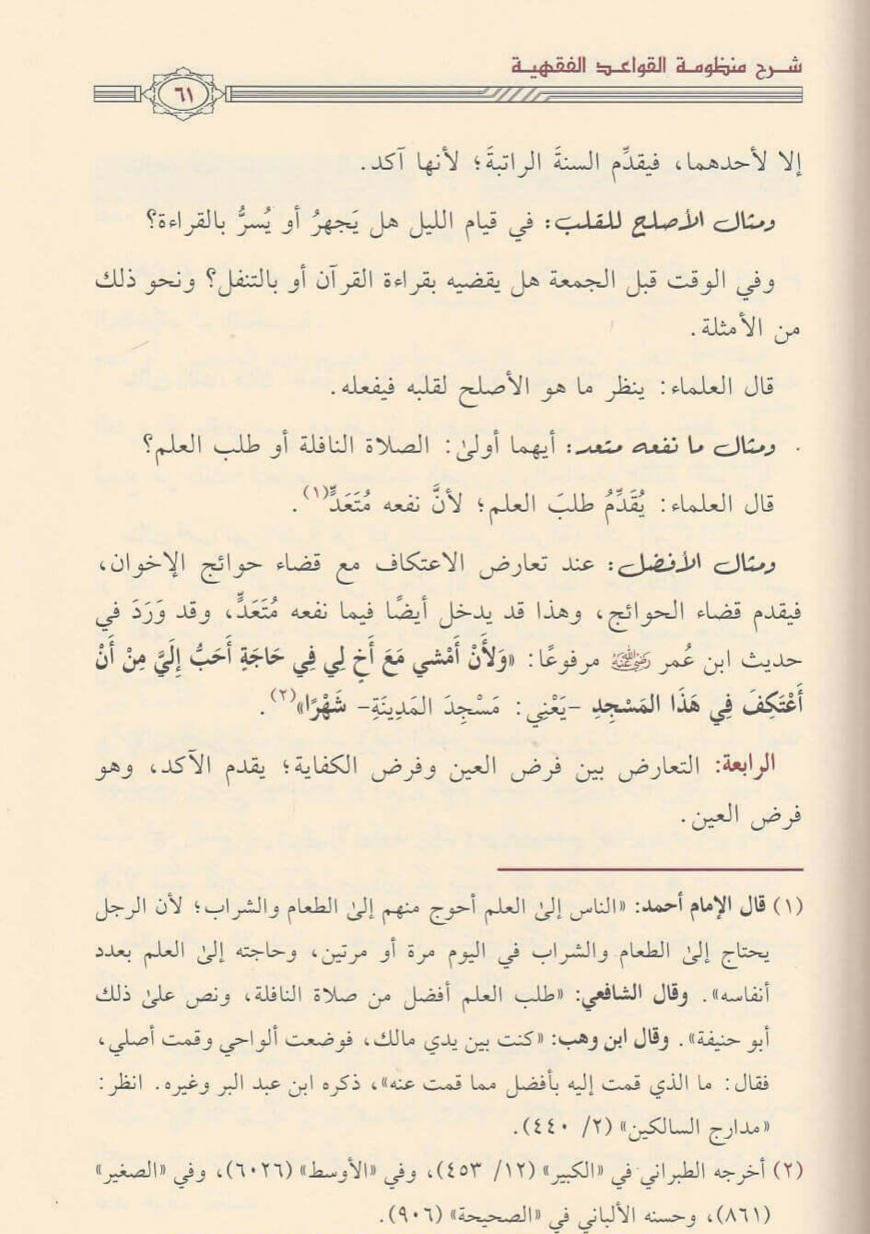 شرح منظومة القواعد الفقهية
٦١
إلا لأحدهما، فيقدِّم السنةَ الراتبةَ؛ لأنها آكد.
ومثال الأصلح للقلب: في قيام الليل هل يَجهرُ أو يُسرُّ بالقراءة؟
وفي الوقت قبل الجمعة هل يقضيه بقراءة القرآن أو بالتنفل؟ ونحو ذلك
من الأمثلة.
قال العلماء: ينظر ما هو الأصلح لقلبه فيفعله.
ومثال ما نفعه متعد: أيهما أولىٰ: الصلاة النافلة أو طلب العلم؟
قال العلماء: يُقَدِّمُ طلبَ العلم؛ لأنَّ نفعه مُتَعَدٍّ(١).
ومثال الأفضل: عند تعارض الاعتكاف مع قضاء حوائج الإخوان،
فيقدم قضاء الحوائج، وهذا قد يدخل أيضًا فيما نفعه مُتَعَدٍّ، وقد وَرَدَ في
حديث ابن عُمر رضي الله عنه مرفوعًا: «وَلأَنْ أَمْشي مَعَ أَخٍ لِي فِي حَاجَةٍ أَحَبُّ إِلَيَّ مِنْ أَنْ
أَعْتَكِفَ فِي هَذَا المَسْجِدِ -يَعْنِي: مَسْجِدَ المَدِينَةِ- شَهْرًا»(٢).
الرابعة: التعارض بين فرض العين وفرض الكفاية؛ يقدم الآكد، وهو
فرض العين.
(١) قال الإمام أحمد: «الناس إلىٰ العلم أحوج منهم إلىٰ الطعام والشراب؛ لأن الرجل
يحتاج إلىٰ الطعام والشراب في اليوم مرة أو مرتين، وحاجته إلىٰ العلم بعدد
أنفاسه». وقال الشافعي: «طلب العلم أفضل من صلاة النافلة، ونص علىٰ ذلك
أبو حنيفة». وقال ابن وهب: «كنت بين يدي مالك، فوضعت ألواحي وقمت أصلي،
فقال: ما الذي قمت إليه بأفضل مما قمت عنه»، ذكره ابن عبد البر وغيره. انظر:
«مدارج السالكين» (٢/ ٤٤٠).
(٢) أخرجه الطبراني في «الكبير» (١٢/ ٤٥٣)، وفي «الأوسط» (٦٠٢٦)، وفي «الصغير»
(٨٦١)، وحسنه الألباني في «الصحيحة» (٩٠٦).